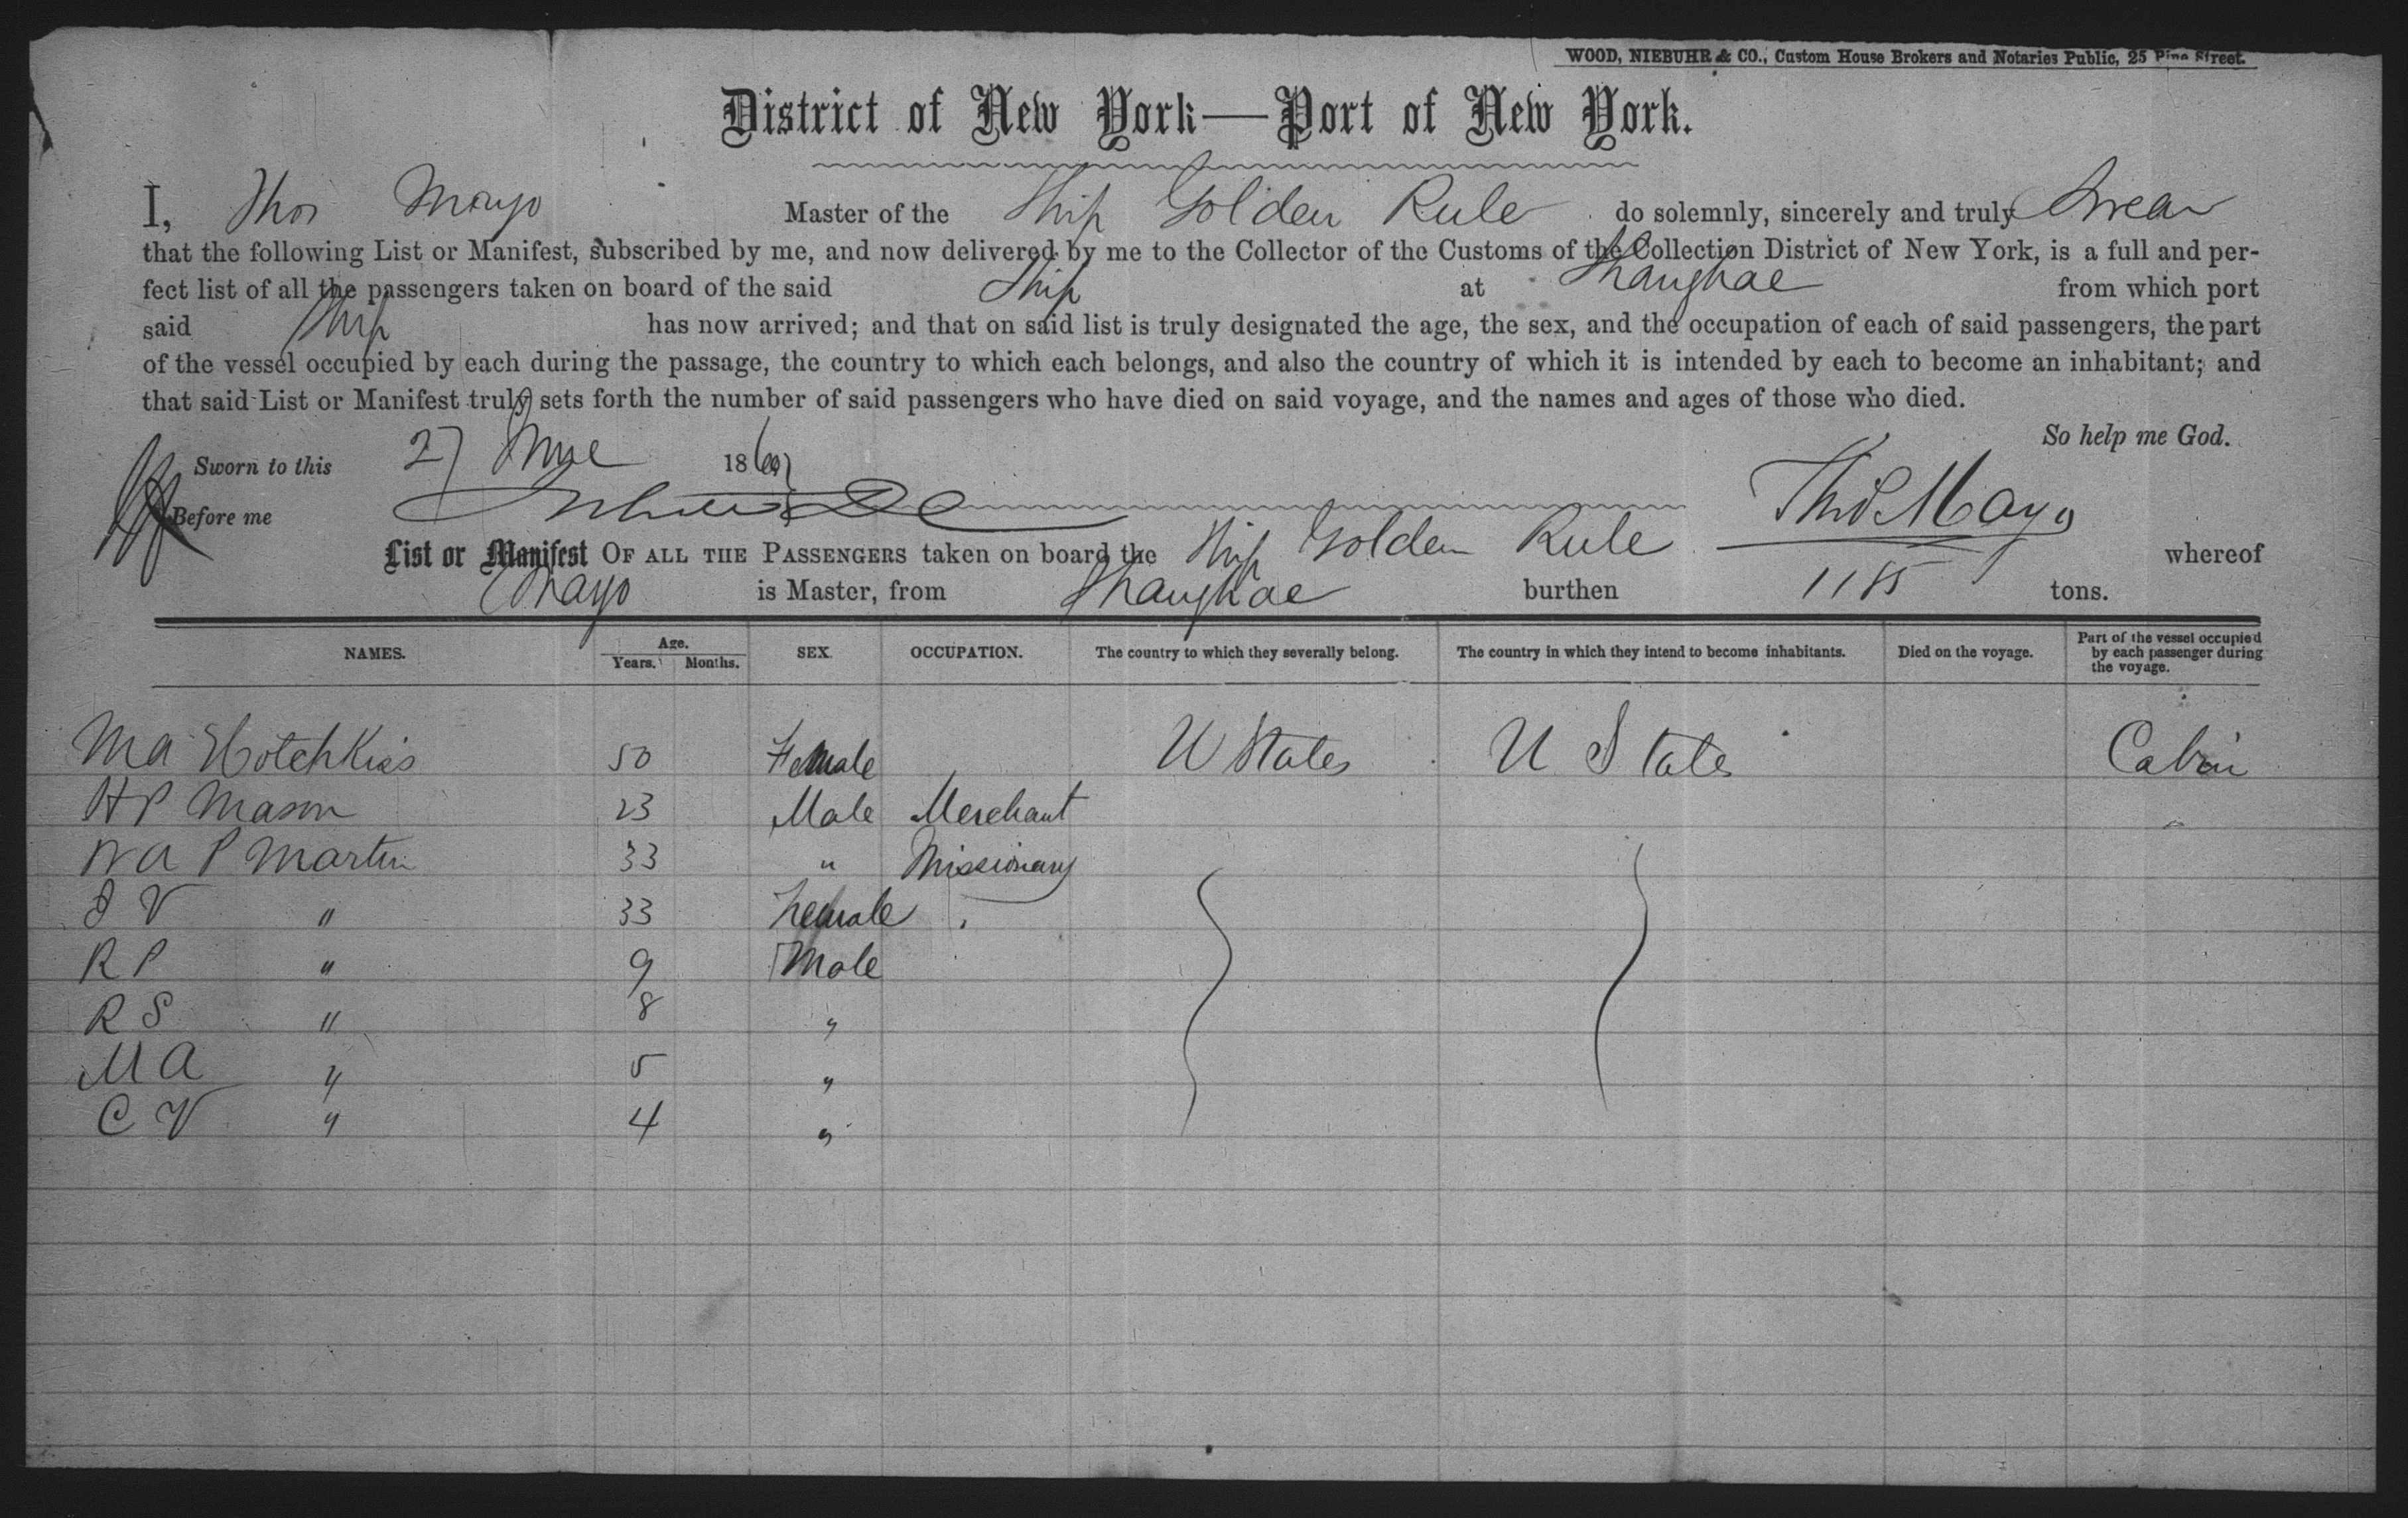 WOOD, NIEBUHR & CO., Custom House Brokers and Notaries Public, 25 Pine Street.
District of New York—Port of New York.
I, Thos Mayo Master of the Ship Golden Rule do solemnly, sincerely and truly Swear
that the following List or Manifest, subscribed by me, and now delivered by me to the Collector of the Customs of the Collection District of New York, is a full and per-
fect list of all the passengers taken on board of the said Ship at Shanghae from which port
said Ship has now arrived; and that on said list is truly designated the age, the sex, and the occupation of each of said passengers, the part
of the vessel occupied by each during the passage, the country to which each belongs, and also the country of which it is intended by each to become an inhabitant; and
that said List or Manifest truly sets forth the number of said passengers who have died on said voyage, and the names and ages of those who died.
So help me God.
Sworn to this 27 June 1860
Before me
Thos Mayo
List or Manifest OF ALL THE PASSENGERS taken on board the Ship Golden Rule whereof
Mayo is Master, from Shanghae burthen 1185 tons.
NAMES. Age. Years. Months. SEX. OCCUPATION. The country to which they severally belong. The country in which they intend to become inhabitants. Died on the voyage. Part of the vessel occupied by each passenger during the voyage.
M A Hotchkiss 50 Female U States U States Cabin
H P Mason 23 Male Merchant "
W A P Martin 33 " Missionary
J V " 33 Female
R P " 9 Male
R S " 8 "
M A " 5 "
C V " 4 "